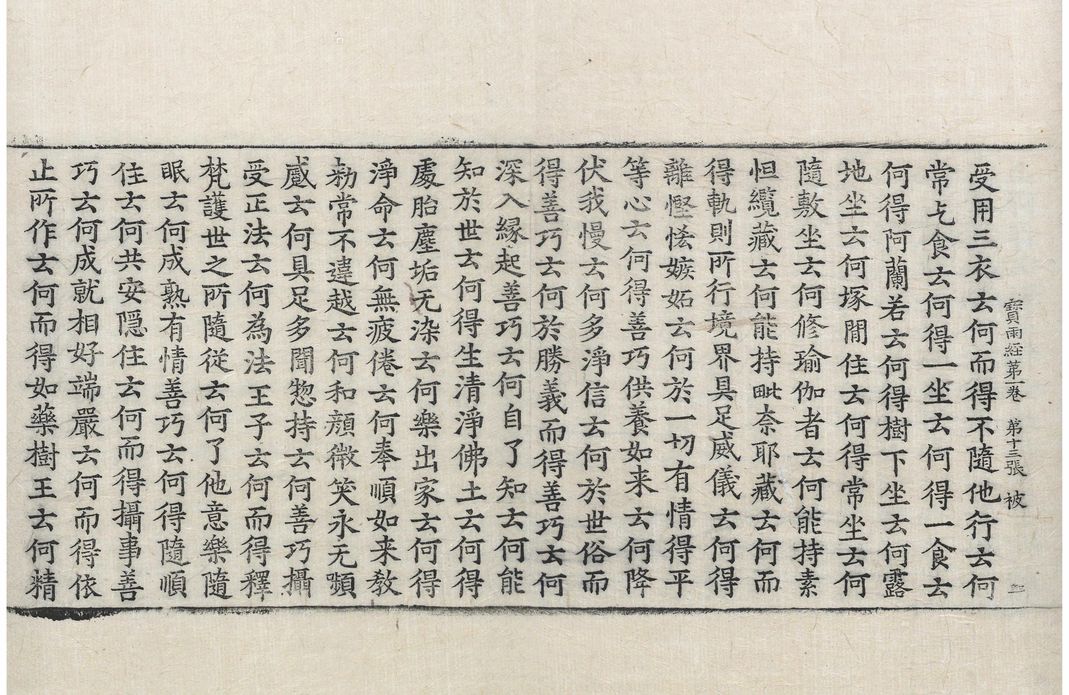 寶雨経苐一卷 第十三張 被
受用三衣云何而得不隨他行云何
常乞食云何得一坐云何得一食云
何得阿蘭若云何得樹下坐云何露
地坐云何塚閒住云何得常坐云何
隨敷坐云何修瑜伽者云何能持素
怛纜藏云何能持毗奈耶藏云何而
得軌則所行境界具足威儀云何得
離慳悋嫉妬云何於一切有情得平
等心云何得善巧供養如来云何降
伏我慢云何多淨信云何於世俗而
得善巧云何於勝義而得善巧云何
深入緣起善巧云何自了知云何能
知於世云何得生清淨佛土云何得
處胎塵垢无染云何樂出家云何得
淨命云何無疲倦云何奉順如来教
勑常不違越云何和顏微笑永无顰
蹙云何具足多聞惣持云何善巧攝
受正法云何為法王子云何而得釋
梵護世之所隨從云何了他意樂隨
眠云何成熟有情善巧云何得隨順
住云何共安隱住云何而得攝事善
巧云何成就相好端嚴云何而得依
止所作云何而得如藥樹王云何精